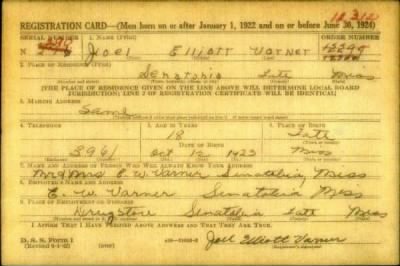 REGISTRATION CARD—(Men born on or after January 1, 1922 and on or before June 30, 1924)
SERIAL NUMBER 1. NAME (Print) ORDER NUMBER
N Joel Elliott Varner 13299
2. PLACE OF RESIDENCE (Print)
Senatobia Tate Miss
[THE PLACE OF RESIDENCE GIVEN ON THE LINE ABOVE WILL DETERMINE LOCAL BOARD
JURISDICTION; LINE 2 OF REGISTRATION CERTIFICATE WILL BE IDENTICAL]
3. MAILING ADDRESS
Same
4. TELEPHONE 5. AGE IN YEARS 6. PLACE OF BIRTH
18 Tate
DATE OF BIRTH
3961 Oct 12 1923 Miss
7. NAME AND ADDRESS OF PERSON WHO WILL ALWAYS KNOW YOUR ADDRESS
Mr & Mrs E. W. Varner Senatobia, Miss
8. EMPLOYER'S NAME AND ADDRESS
E. W. Varner Senatobia Miss
9. PLACE OF EMPLOYMENT OR BUSINESS
Drug Store Senatobia Tate Miss
I AFFIRM THAT I HAVE VERIFIED ABOVE ANSWERS AND THAT THEY ARE TRUE.
D. S. S. Form 1
Joel Elliott Varner